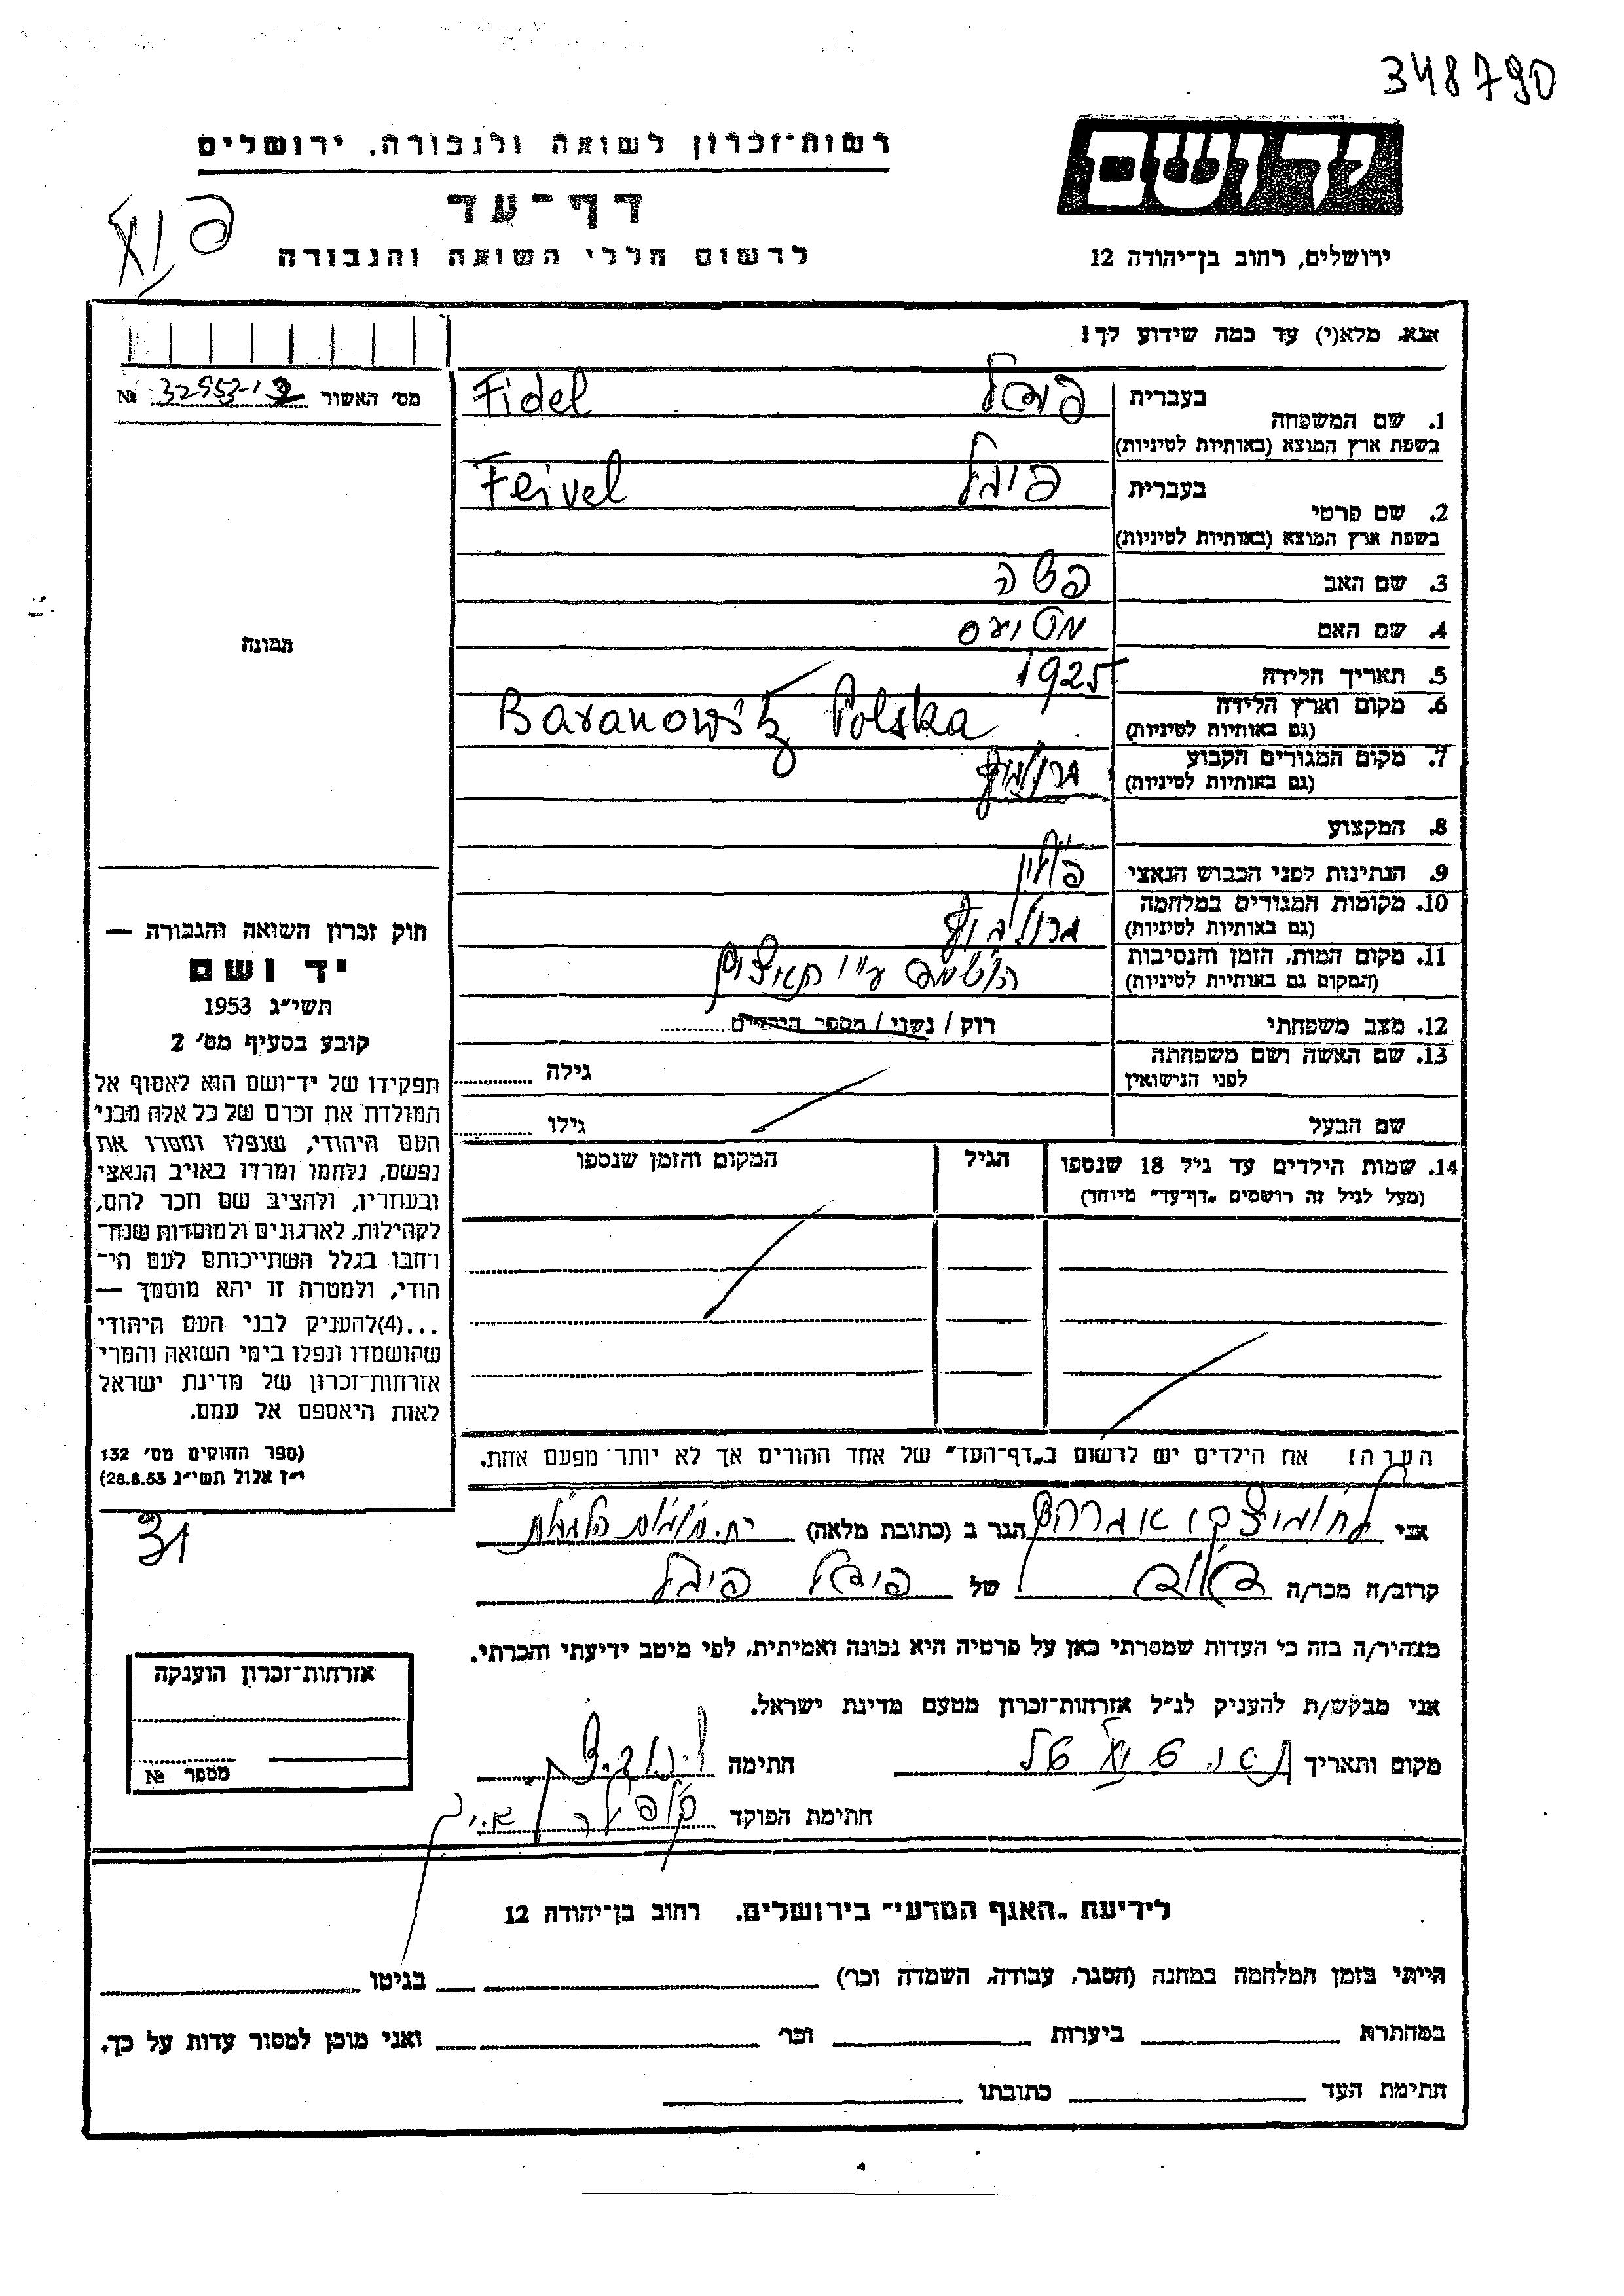 348790
ידושם
רשות־זכרון לשואה ולגבורה. ירושלים
דף־עד
לרשום חללי השואה והגבורה
ירושלים, רחוב בן־יהודה 12
אנא, מלא(י) עד כמה שידוע לך!
מס' האשור № 32953-19
תמונה
1. שם המשפחה בעברית פידל Fidel
בשפת ארץ המוצא (באותיות לטיניות)
2. שם פרטי בעברית פיבל Feivel
בשפת ארץ המוצא (באותיות לטיניות)
3. שם האב
4. שם האם
5. תאריך הלידה 1925
6. מקום וארץ הלידה Baranowitz Polska
(גם באותיות לטיניות)
7. מקום המגורים הקבוע
(גם באותיות לטיניות)
8. המקצוע
9. הנתינות לפני הכבוש הנאצי פולין
10. מקומות המגורים במלחמה
(גם באותיות לטיניות)
11. מקום המות, הזמן והנסיבות
(המקום גם באותיות לטיניות)
12. מצב משפחתי רוק / נשוי / מספר הילדים
13. שם האשה ושם משפחתה גילה
לפני הנישואין
שם הבעל גילו
14. שמות הילדים עד גיל 18 שנספו הגיל המקום והזמן שנספו
(מעל לגיל זה רושמים „דף־עד" מיוחד)
הערה! את הילדים יש לרשום ב„דף־העד" של אחד ההורים אך לא יותר מפעם אחת.
חוק זכרון השואה והגבורה —
יד ושם
תשי"ג 1953
קובע בסעיף מס' 2
תפקידו של יד־ושם הוא לאסוף אל
המולדת את זכרם של כל אלה מבני
העם היהודי, שנפלו ומסרו את
נפשם, נלחמו ומרדו באויב הנאצי
ובעוזריו, ולהציב שם וזכר להם,
לקהילות, לארגונים ולמוסדות שנח־
רבו בגלל השתייכותם לעם הי־
הודי, ולמטרה זו יהא מוסמך —
...(4)להעניק לבני העם היהודי
שהושמדו ונפלו בימי השואה והמרי
אזרחות־זכרון של מדינת ישראל
לאות היאספם אל עמם.
(ספר החוקים מס' 132
י"ז אלול תשי"ג 28.8.53)
31
אני אברהם הגר ב (כתובת מלאה)
קרוב/ה מכר/ה של פידל פיבל
מצהיר/ה בזה כי העדות שמסרתי כאן על פרטיה היא נכונה ואמיתית, לפי מיטב ידיעתי והכרתי.
אני מבקש/ת להעניק לנ"ל אזרחות־זכרון מטעם מדינת ישראל.
מקום ותאריך חתימה
חתימת הפוקד
אזרחות־זכרון הוענקה
מספר №
לידיעת „האגף המדעי" בירושלים. רחוב בן־יהודה 12
הייתי בזמן המלחמה במחנה (הסגר, עבודה, השמדה וכו') בגיטו
במחתרת ביערות וכו' ואני מוכן למסור עדות על כך.
חתימת העד כתובתו